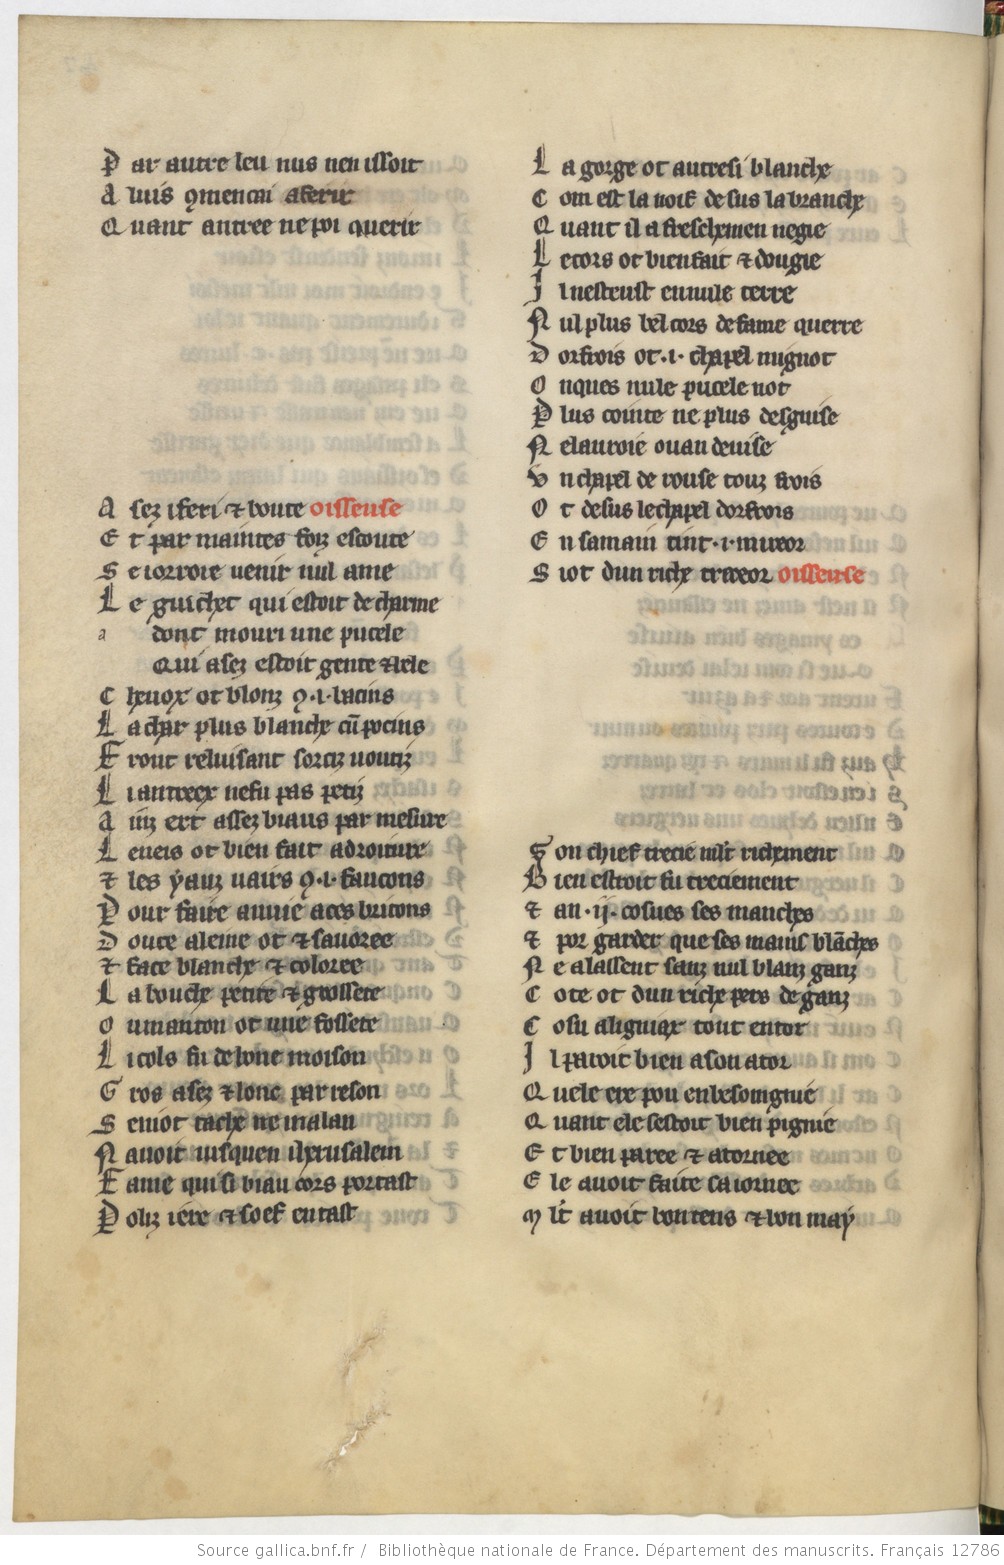 P ar autre leu nus nen issoit
A luis 9mencai aferir
Q uant autree ne poi querir
A sez iferi ⁊ boute oisseuse
E t par maintes foiz escoute
S e iorroie uenir nul ame
L e guichet qui estoit de charme
a dont mouri une pucele
Qui asez estoit gente ⁊ bele
C heuox ot blonz 9 .i. bacins
L a char plus blanche cū pocins
F ront reluisant sorciz uoutiz
L i antreex nefu pas petiz
A inz ert assez biaus par mesure
L e neis ot bien fait a droiture
⁊ les ẏauz uairs 9 .i. faucons
P our faire annie a ces bricons
D ouce aleine ot ⁊ sauoree
⁊ face blanche ⁊ coloree
L a bouche petite ⁊ grossete
O u manton ot une fossete
L i cols fu de bone moison
G ros asez ⁊ lonc par reson
S e niot tache ne malan
N auoit iusquen iherusalem
F ame qui si biau cors portast
P oliz iere ⁊ soef eu tast
L a gorge ot autresi blanche
C om est la noif desus la branche
Q uant il a freschemen negie
L e cors ot bien fait ⁊ dougie
I l nesteust en nule terre
N ul plus bel cors de fame querre
D orfrois ot .i. chapel mignot
O nques nule pucele not
P lus cointe ne plus desguise
N e lauroie ouan deuise
V n chapel de rouse touz frois
O t desus le chapel dorfrois
E n sa main tint .i. mireor
S iot dun riche treceor oisseuse
S on chief trecie ml't richement
B ien estroit fu treciement
⁊ an .ij. cosues ses manches
⁊ por garder que ses mains blāches
N e alassent sanz nul blanz ganz
C ote ot dun riche pers de ganz
C osu a ligniax tout entor
I l paroit bien a son ator
Q uele ere pou enbesoingnie
Q uant ele sestoit bien pignie
E t bien paree ⁊ atornee
E le auoit faite sa iornee
M l't auoit bon tens ⁊ bon maẏ
Source gallica.bnf.fr / Bibliothèque nationale de France. Département des manuscrits. Français 12786